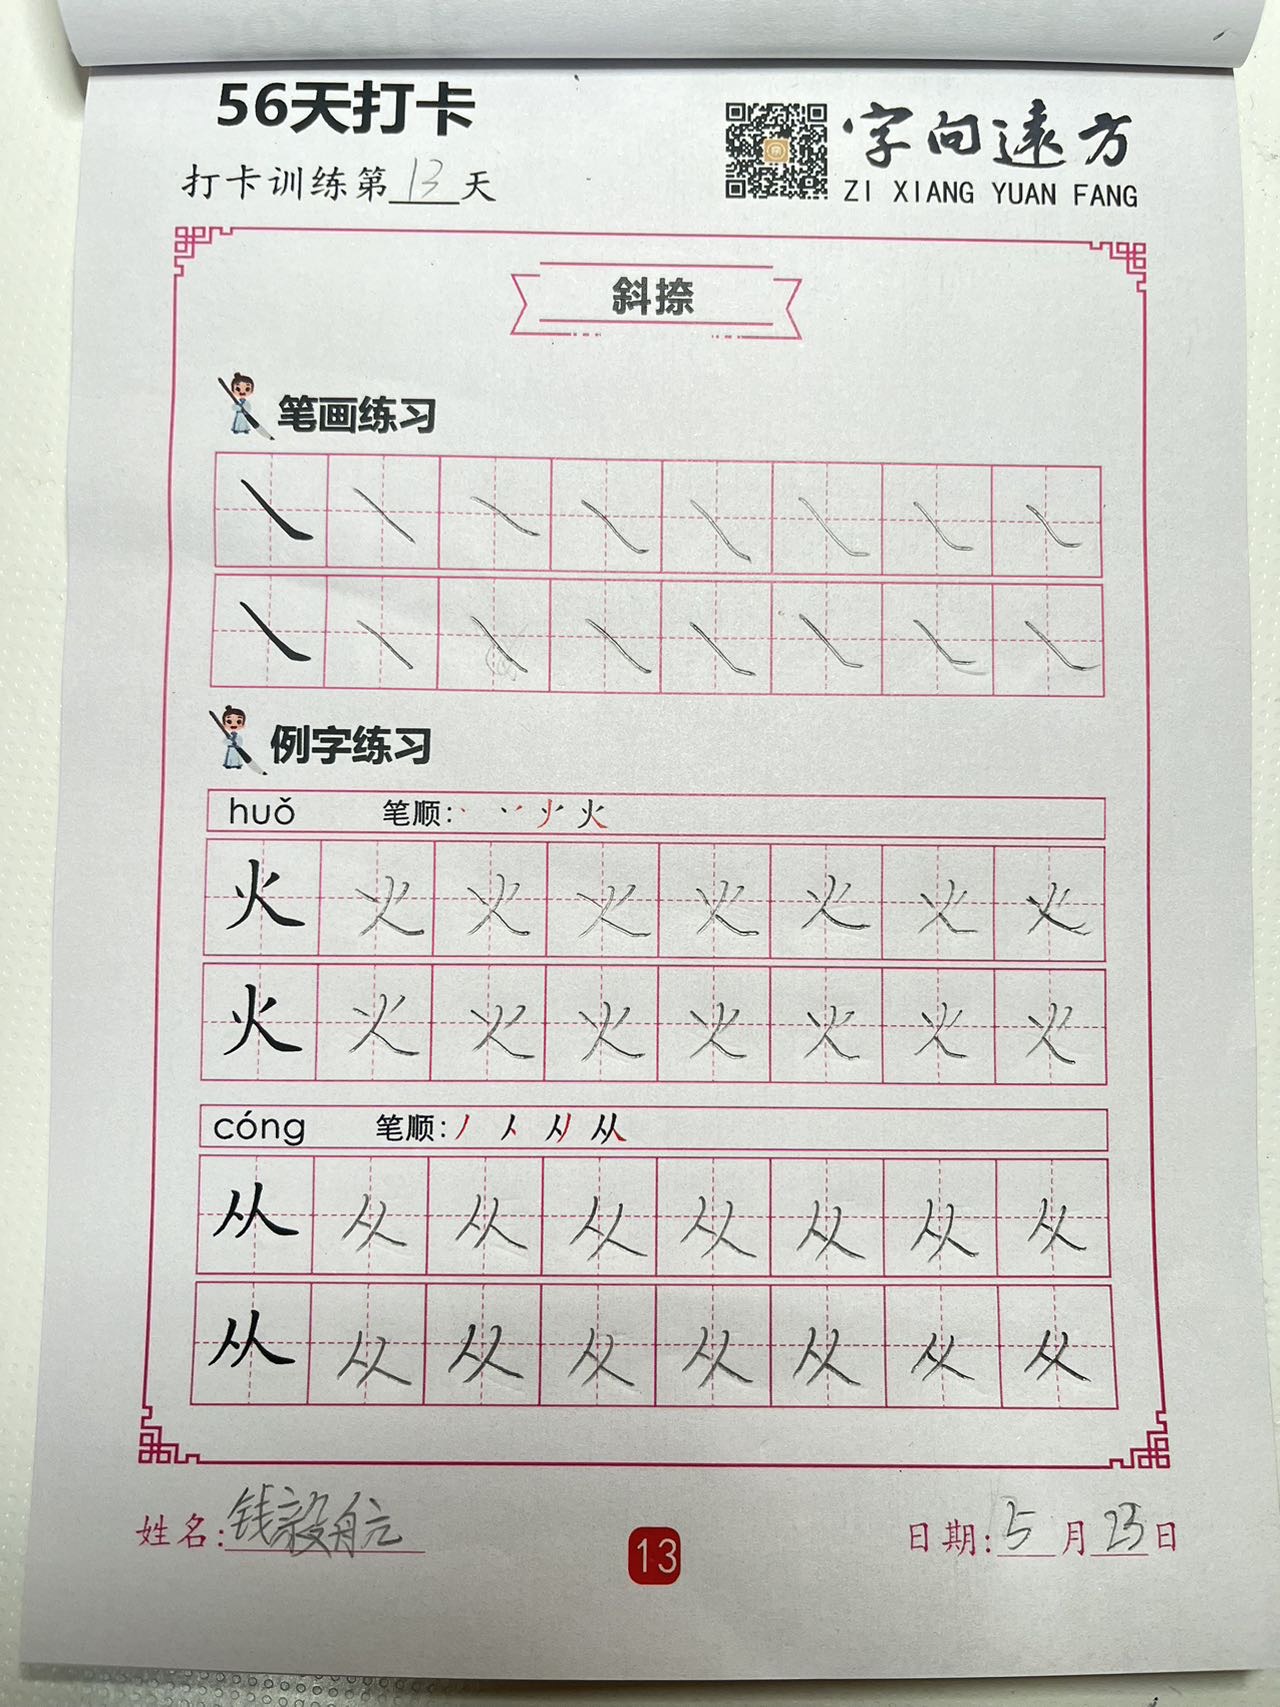 56天打卡
字向遠方
打卡训练第13天
ZI XIANG YUAN FANG
斜捺
笔画练习
例字练习
huǒ 笔顺: 火
火 火 火 火 火 火 火 火
火 火 火 火 火 火 火 火
cóng 笔顺: 从
从 从 从 从 从 从 从 从
从 从 从 从 从 从 从 从
姓名:钱毅航
13
日期:5月23日